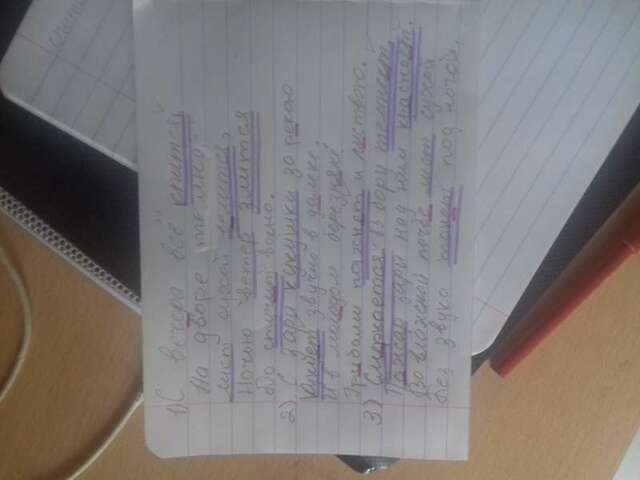 1) С вечера всё спится,
На дворе темно,
Лист сухой валится,
Ночью ветер злится
Да стучит в окно.
2) С зари кукушка за рекою
Кукует звучно вдалеке.
И в молодом березняке
Грибами пахнет и листвою.
3) Смеркается. В бору темнеет.
Пожар зари над ним краснеет.
Во влажной почве лист сухой
Без звука тонет под ногой.